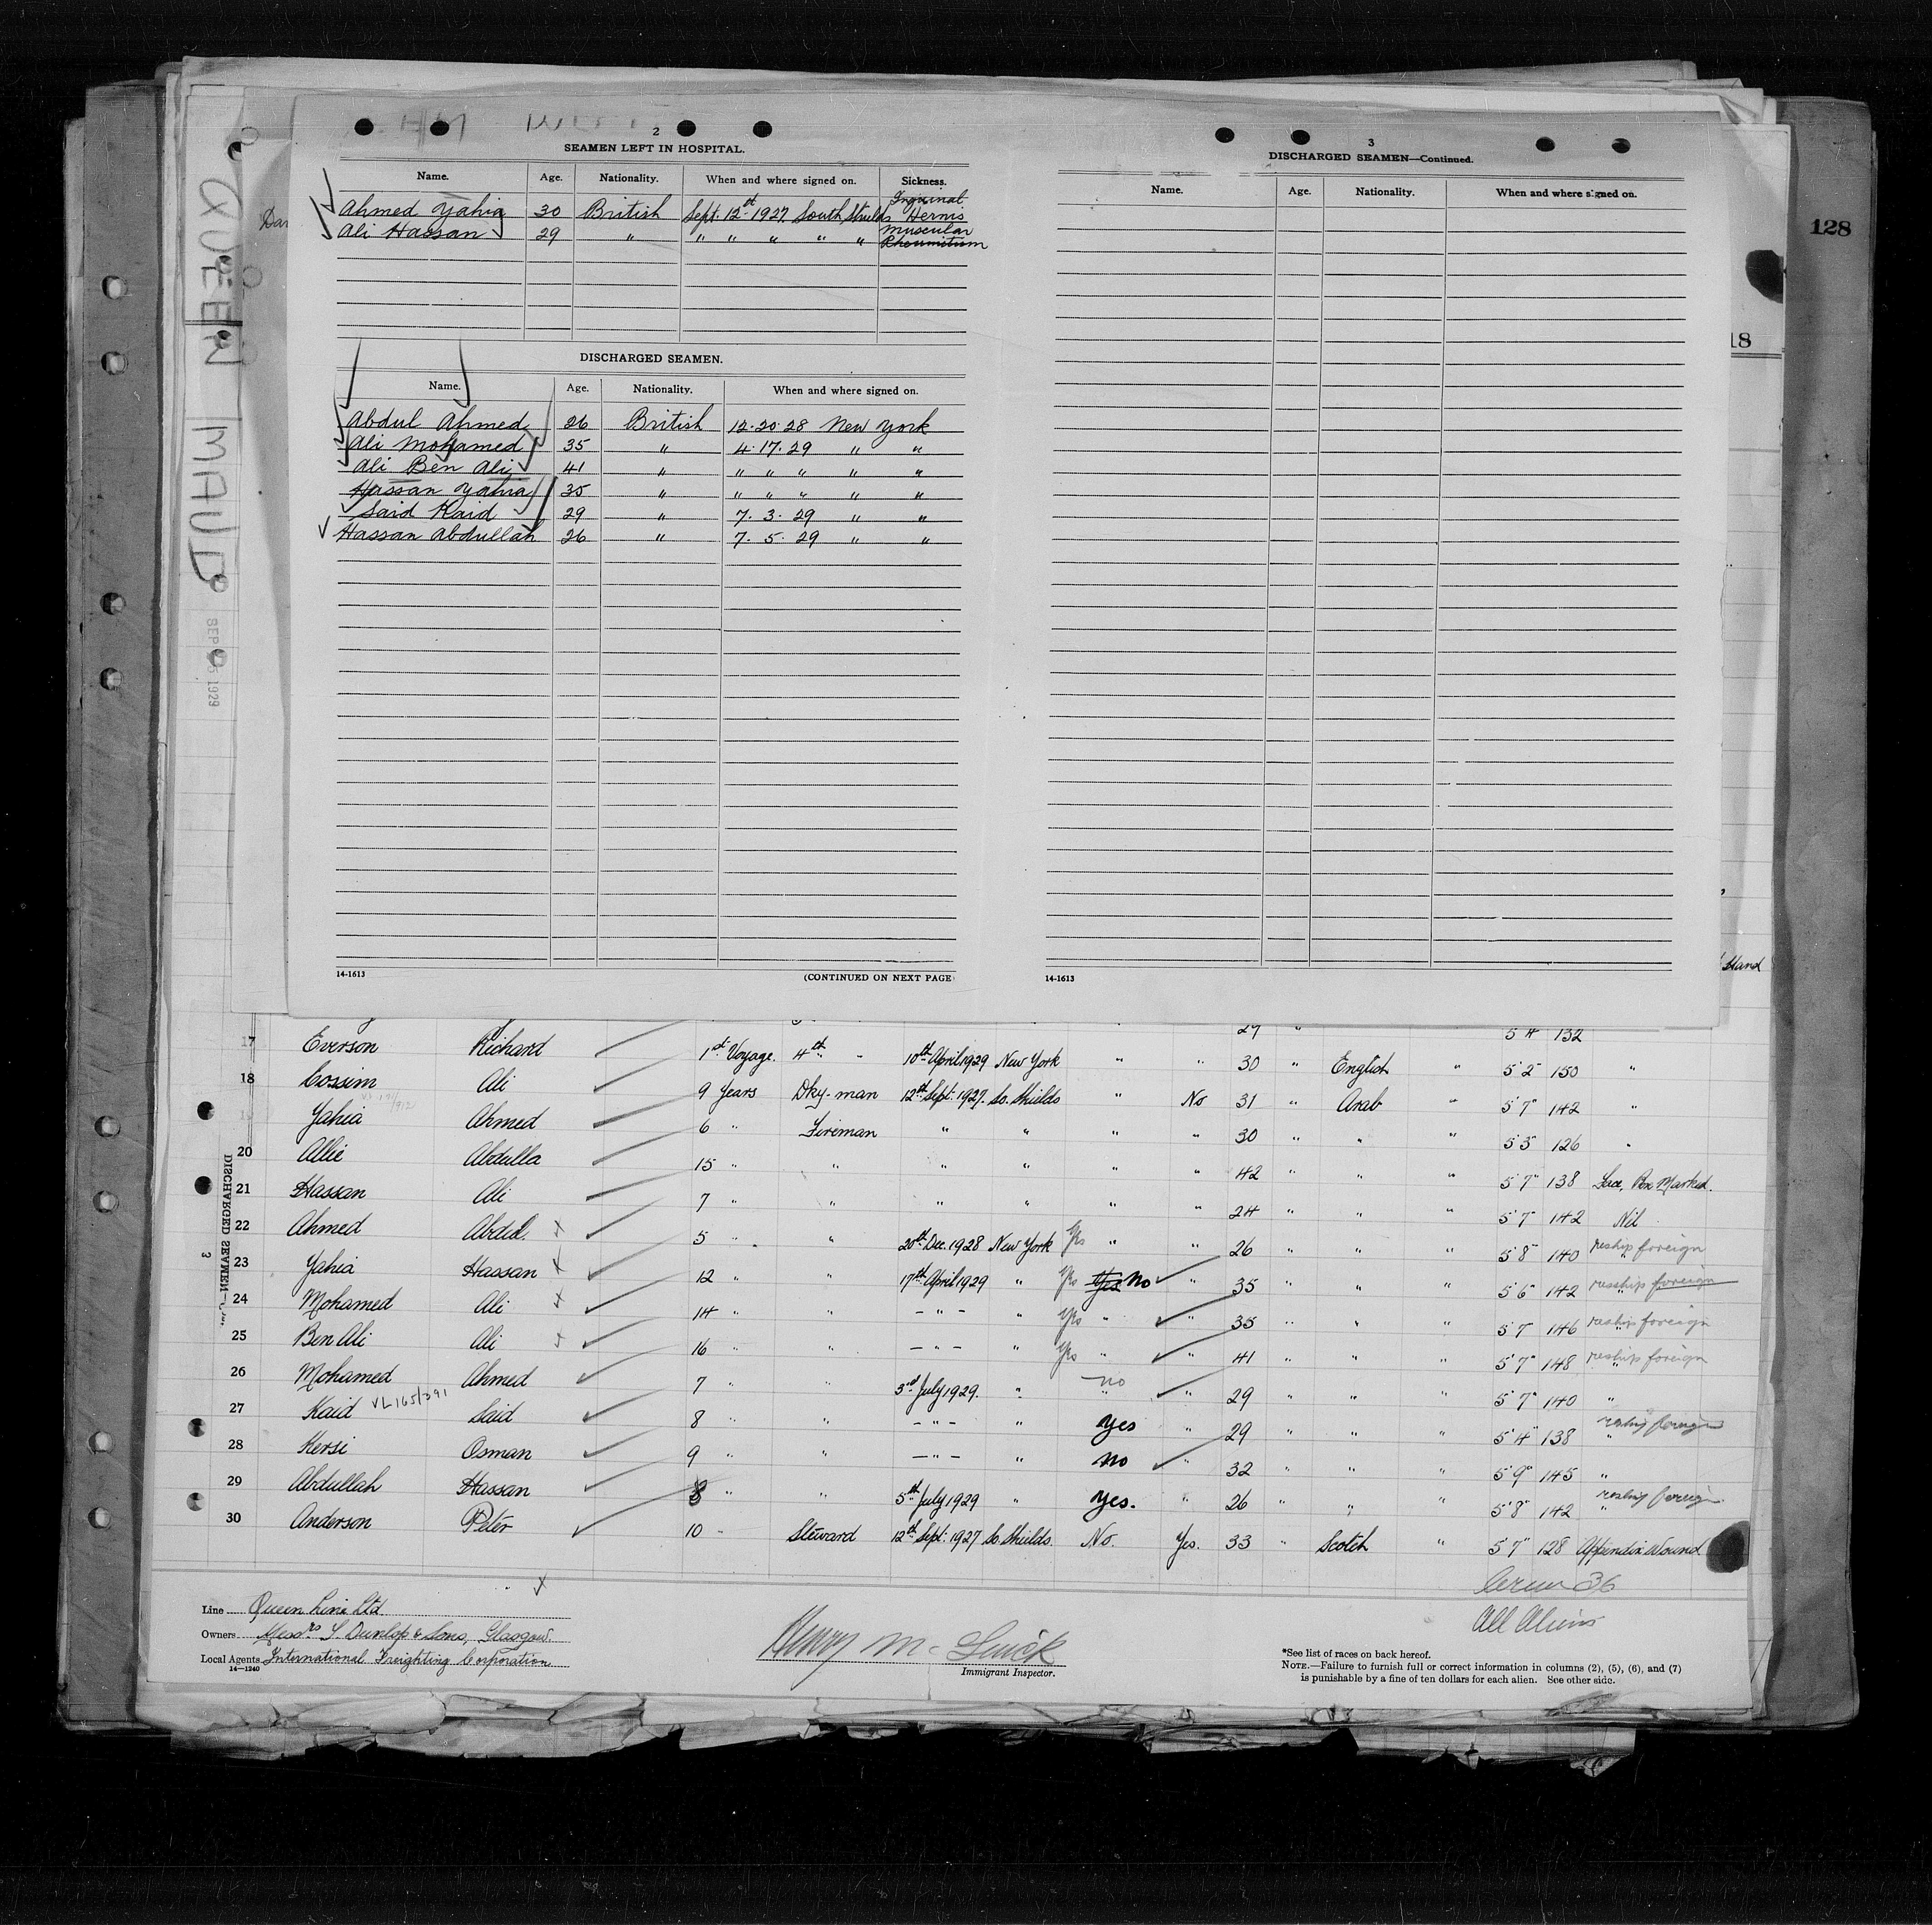 128
18
QUEEN MAUD
SEP 1929
2
SEAMEN LEFT IN HOSPITAL.
Name. Age. Nationality. When and where signed on. Sickness.
Ahmed Yahia 30 British Sept. 12th 1927 South Shields Inguinal Hernis
Ali Hassan 29 " " " " " " Muscular Rheumitism
DISCHARGED SEAMEN.
Name. Age. Nationality. When and where signed on.
Abdul Ahmed 26 British 12.20.28 New York
Ali Mohamed 35 " 4.17.29 " "
Ali Ben Ali 41 " " " " " "
Hassan Yahia 35 " " " " " "
Said Kaid 29 " 7.3.29 " "
Hassan Abdullah 26 " 7.5.29 " "
14-1613 (CONTINUED ON NEXT PAGE
3
DISCHARGED SEAMEN—Continued.
Name. Age. Nationality. When and where signed on.
14-1613
Hand
29 " 5 4 132
17 Everson Richard 1st Voyage. 4th " 10th April 1929 New York " " 30 " English " 5 2 150 "
18 Cossim Ali 9 Years Dky-man 12th Sept. 1927. So. Shields " No 31 " Arab " 5 7 142 "
Yahia Ahmed 6 " Fireman " " " " 30 " " " 5 3 126 "
20 Allie Abdulla 15 " " " " " " 42 " " " 5 7 138 Face, Pox Marked.
21 Hassan Ali 7 " " " " " " 24 " " " 5 7 142 Nil
22 Ahmed Abdul. 5 " " 20th Dec. 1928 New York Yes " " 26 " " " 5 8 140 reship foreign
23 Yahia Hassan 12 " " 17th April 1929 " Yes Yes No " 35 " " " 5 6 142 reship foreign
24 Mohamed Ali 14 " " - " - " Yes " " 35 " " " 5 7 146 reship foreign
25 Ben Ali Ali 16 " " - " - " Yes " " 41 " " " 5 7 148 reship foreign
26 Mohamed Ahmed 7 " " 3rd July 1929. " no " " 29 " " " 5 7 140 "
27 Kaid VL165/391 Said 8 " " - " - " yes " 29 " " " 5 4 138 reship foreign
28 Kersi Osman 9 " " - " - " no " 32 " " " 5 9 145 "
29 Abdullah Hassan 8 " " 5th July 1929 " yes. " 26 " " " 5 8 142 reship foreign
30 Anderson Peter 10 " Steward 12th Sept. 1927 So. Shields. No. Yes. 33 " Scotch " 5 7 128 Appendix Wound
DISCHARGED SEAMEN
3
Crew 36
All Aliens
Line Queen Line Ltd
Owners Messrs J. Dunlop & Sons, Glasgow.
Local Agents International Freighting Corporation
14—1240
Immigrant Inspector.
*See list of races on back hereof.
NOTE.—Failure to furnish full or correct information in columns (2), (5), (6), and (7)
is punishable by a fine of ten dollars for each alien. See other side.